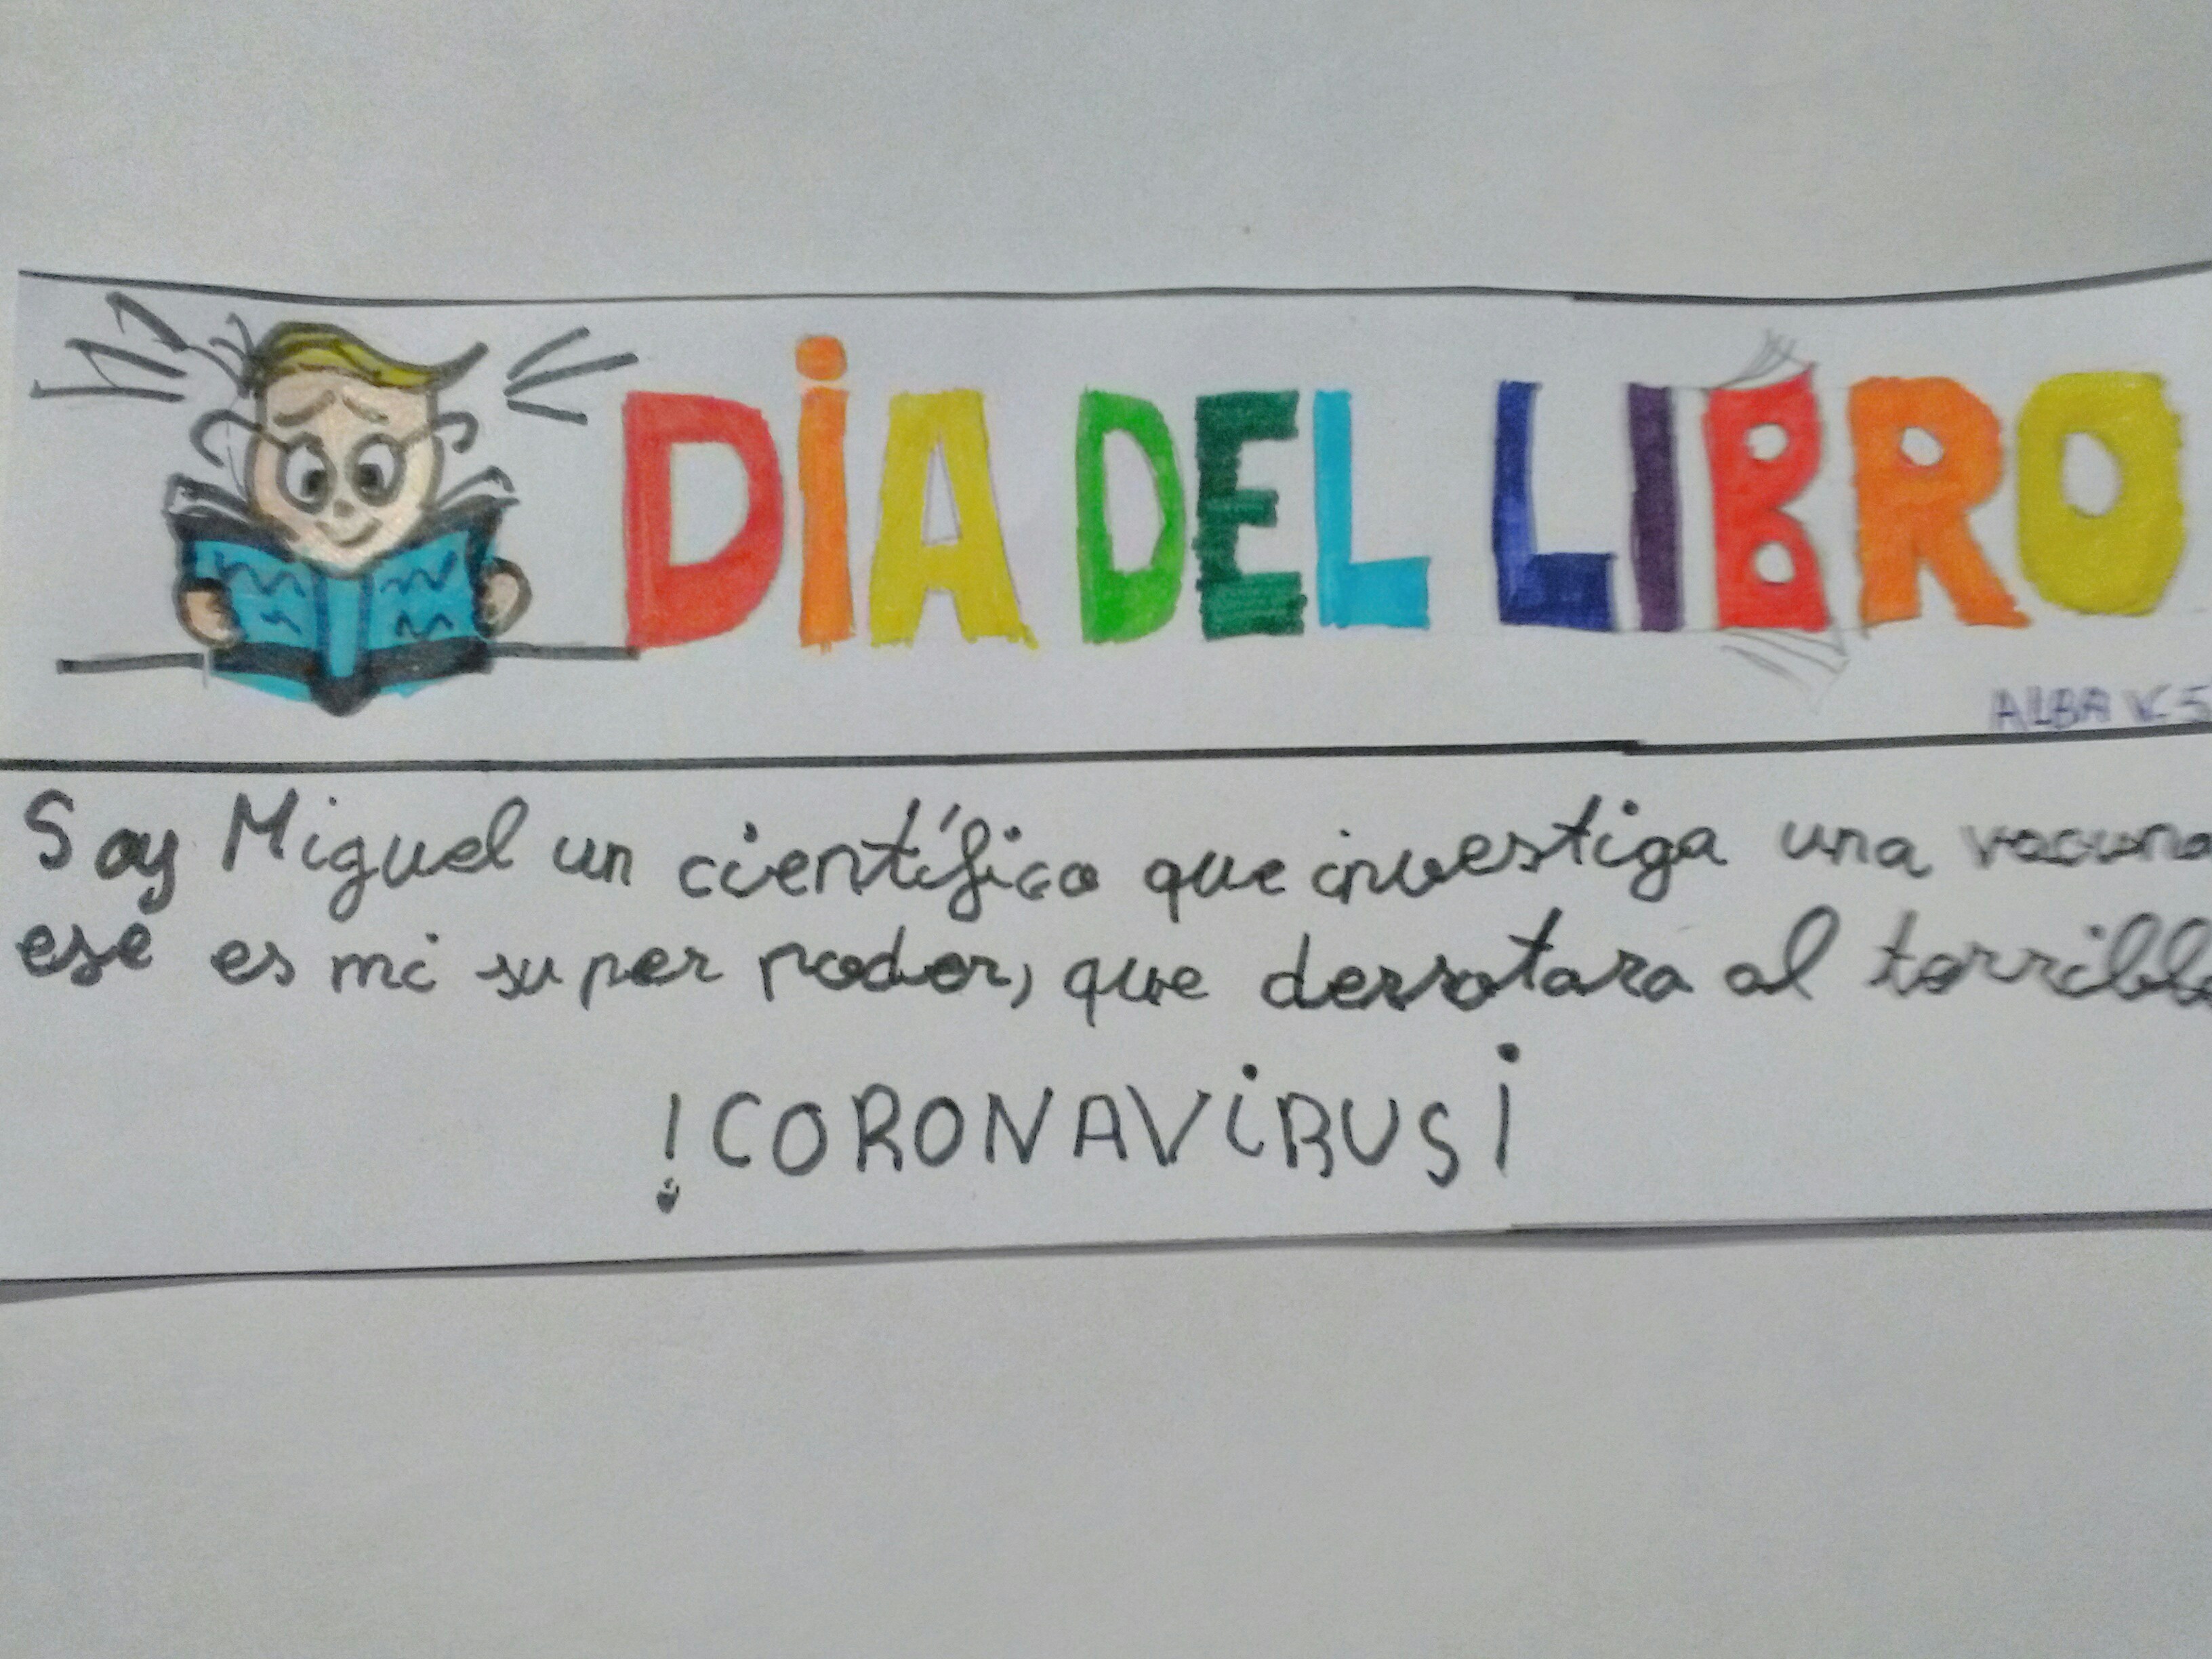 DiA DEL LIBRO
ALBA
Soy Miguel un científico que investiga una vacuna
ese es mi super poder, que derrotara al terrible
!CORONAViRUS¡